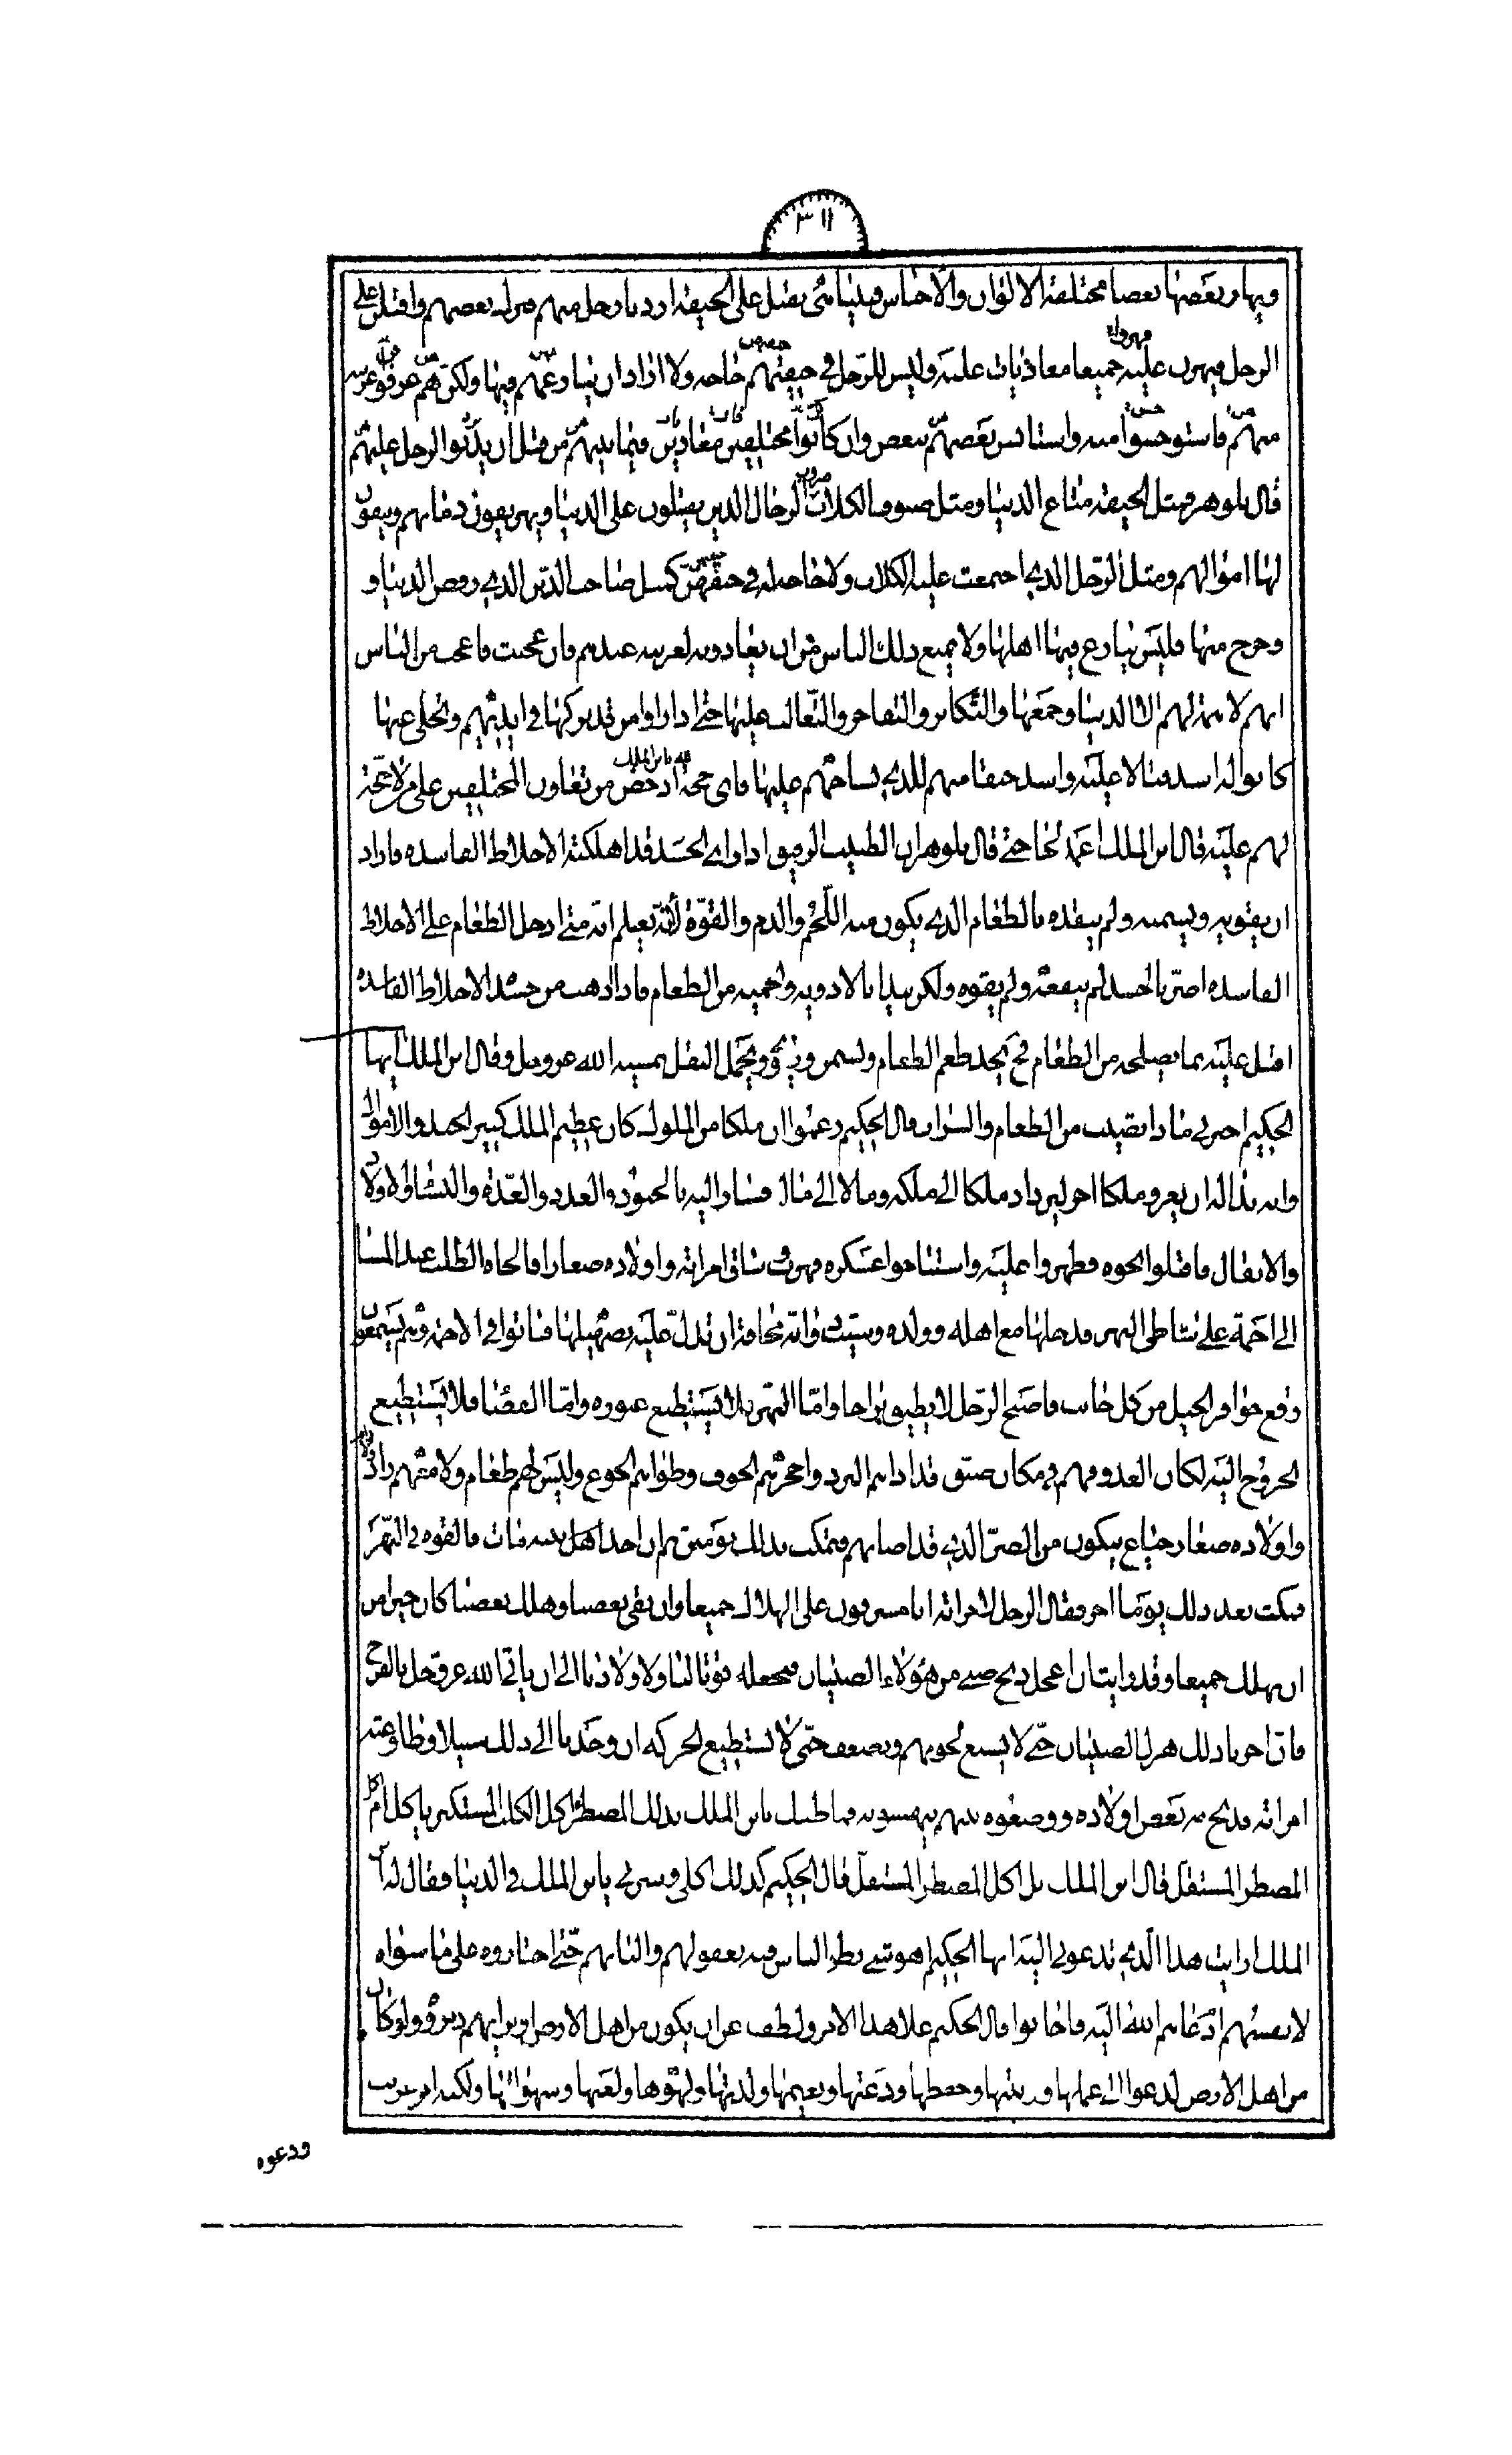 ٣١١
ويهار بعضها بعضا مختلفة الالوان والاجناس فبينا هى تقبل على الجيفة اذ دنا رجل منهم فترك بعضهم واقبلن على
الرجل فيهرون عليه جميعا معاديات عليه وليس للرجل في جيفتهم حاجة ولا اراد ان ينازعهم فيها ولكن هم عرفوا غربته
منهم فاستوحشوا منه واستانس بعضهم ببعض وان كانوا مختلفين متعادين فيما بينهم من قبل ان يدنو الرجل عليهم
قال بلوهر فمثل الجيفة متاع الدنيا ومثل صنوف الكلاب ضروب الرجال الذين يقتتلون على الدنيا ويهريقون دمائهم وينفقون
لها اموالهم ومثل الرجل الذي اجتمعت عليه الكلاب ولا حاجة له في جيفهن كمثل صاحب الدين الذي رفض الدنيا و
وخرج منها فليس ينازع فيها اهلها ولا يمنع ذلك الناس من ان يعادونه لغربته عندهم فان عجبت فاعجب من الناس
انهم لا همة لهم الا الدنيا وجمعها والتكاثر والتفاخر والتغالب عليها حتى اذا راوا من قد تركها في ايديهم وتخلى عنها
كانوا له اشد قتالا عليه واشد حنقا منهم للذي يشاحهم عليها فاي حجة لله يابن الملك ادحض من تعاون المختلفين على من لا حجة
لهم عليه قال ابن الملك اعمد لحاجتي قال بلوهر ان الطبيب الرفيق اذا راى الجسد قد اهلكته الاخلاط الفاسدة فاراد
ان يقويه ويسمنه ولم يغذه بالطعام الذي يكون منه اللحم والدم والقوة لانه يعلم انه متى ادخل الطعام على الاخلاط
الفاسدة اضر بالجسد لم ينفعه ولم يقوه ولكن يبدا بالادوية والحمية من الطعام فاذا اذهب من جسده الاخلاط الفاسدة
اقبل عليه بما يصلحه من الطعام فح يجد طعم الطعام ويسمن ويقوى ويحمل الثقل بمشية الله عز وجل وقال ابن الملك ايها
الحكيم اخبرني ماذا تصيب من الطعام والشراب قال الحكيم زعموا ان ملكا من الملوك كان عظيم الملك كثير الجند والاموال
وانه بدا له ان يغزو ملكا اخر ليزداد ملكا الى ملكه ومالا الى مال فسار اليه بالجنود والعدد والعدة والنساء والاولاد
والاثقال فاقبلوا نحوه فظهروا عليه واستباحوا عسكره فهرب وساق امراته واولاده صغارا فالجاه الطلب عند المساء
الى اجمة على شاطئ النهر فدخلها مع اهله وولده وسيب دوابه مخافة ان تدل عليه بصهيلها فباتوا في الاجمة وهم يسمعون
وقع حوافر الخيل من كل جانب فاصبح الرجل لا يطيق براحا واما النهر فلا يستطيع عبوره واما الفضاء فلا يستطيع
الخروج اليه لمكان العدو فهم في مكان ضيق قد اذاهم البرد واحجرهم الخوف وطواهم الجوع وليس لهم طعام ولا معهم زاد
واولاده صغار جياع يبكون من الضر الذي قد اصابهم فمكث بذلك يومين ثم ان احد اهل بيته مات فالقوه في النهر
فمكث بعد ذلك يوما اخر فقال الرجل لامراته انا مشرفون على الهلاك جميعا وان بقى بعضنا وهلك بعضنا كان خيرا من
ان نهلك جميعا وقد رايت ان اعجل ذبح صبي من هؤلاء الصبيان فنجعله قوتا لنا ولاولادنا الى ان ياتى الله عز وجل بالفرج
فان اخرنا ذلك هزل الصبيان حتى لا يشبع لحومهم ونضعف حتى لا نستطيع الحركة ان وجدنا الى ذلك سبيلا وطاوعته
امراته فذبح بعض اولاده ووضعوه بينهم ينهشونه فما ظنك يابن الملك بذلك المضطر اكل الكلب المستكثر ياكل ام اكل
المضطر المستقل قال ابن الملك بل اكل المضطر المستقل قال الحكيم كذلك اكلي وشربي يابن الملك في الدنيا فقال له ابن
الملك ارايت هذا الذي تدعوني اليه ايها الحكيم اهو شي نظر الناس فيه بعقولهم والبابهم حتى اختاروه على ما سواه
لانفسهم ام دعاهم الله اليه فاجابوا قال الحكيم علا هذا الامر ولطف عن ان يكون من اهل الارض او برايهم دبروه ولو كان
من اهل الارض لدعوا الى عملها وزينتها وحفظها ودعتها ونعيمها ولذتها ولهوها ولعبها وشهواتها ولكنه امر غريب
ودعوه